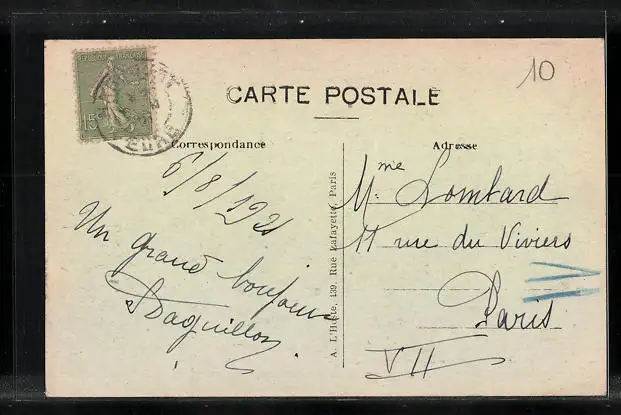 10
REPUBLIQUE FRANÇAISE
15c
EURE
CARTE POSTALE
Correspondance
Adresse
6/8/1921
Un grand bonjour
Daguillon
A. L'Hoste, 139, Rue Lafayette, Paris
Mme Lombard
11 rue du Viviers
Paris
VII